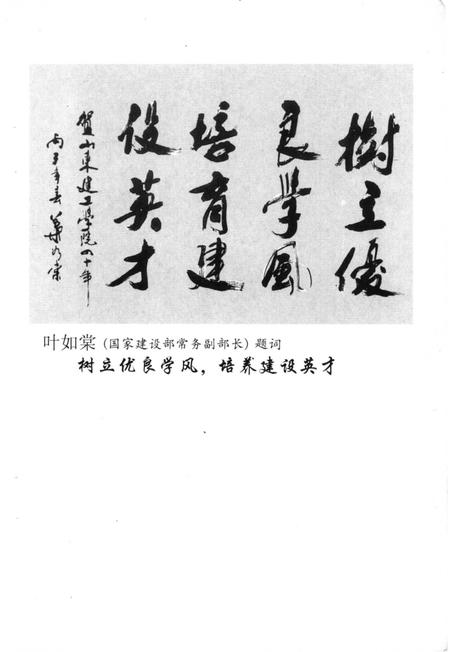 樹立優
良學風
培育建
设英才
贺山东建工学院四十年
丙子年春 叶如棠
叶如棠（国家建设部常务副部长）题词
树立优良学风，培养建设英才